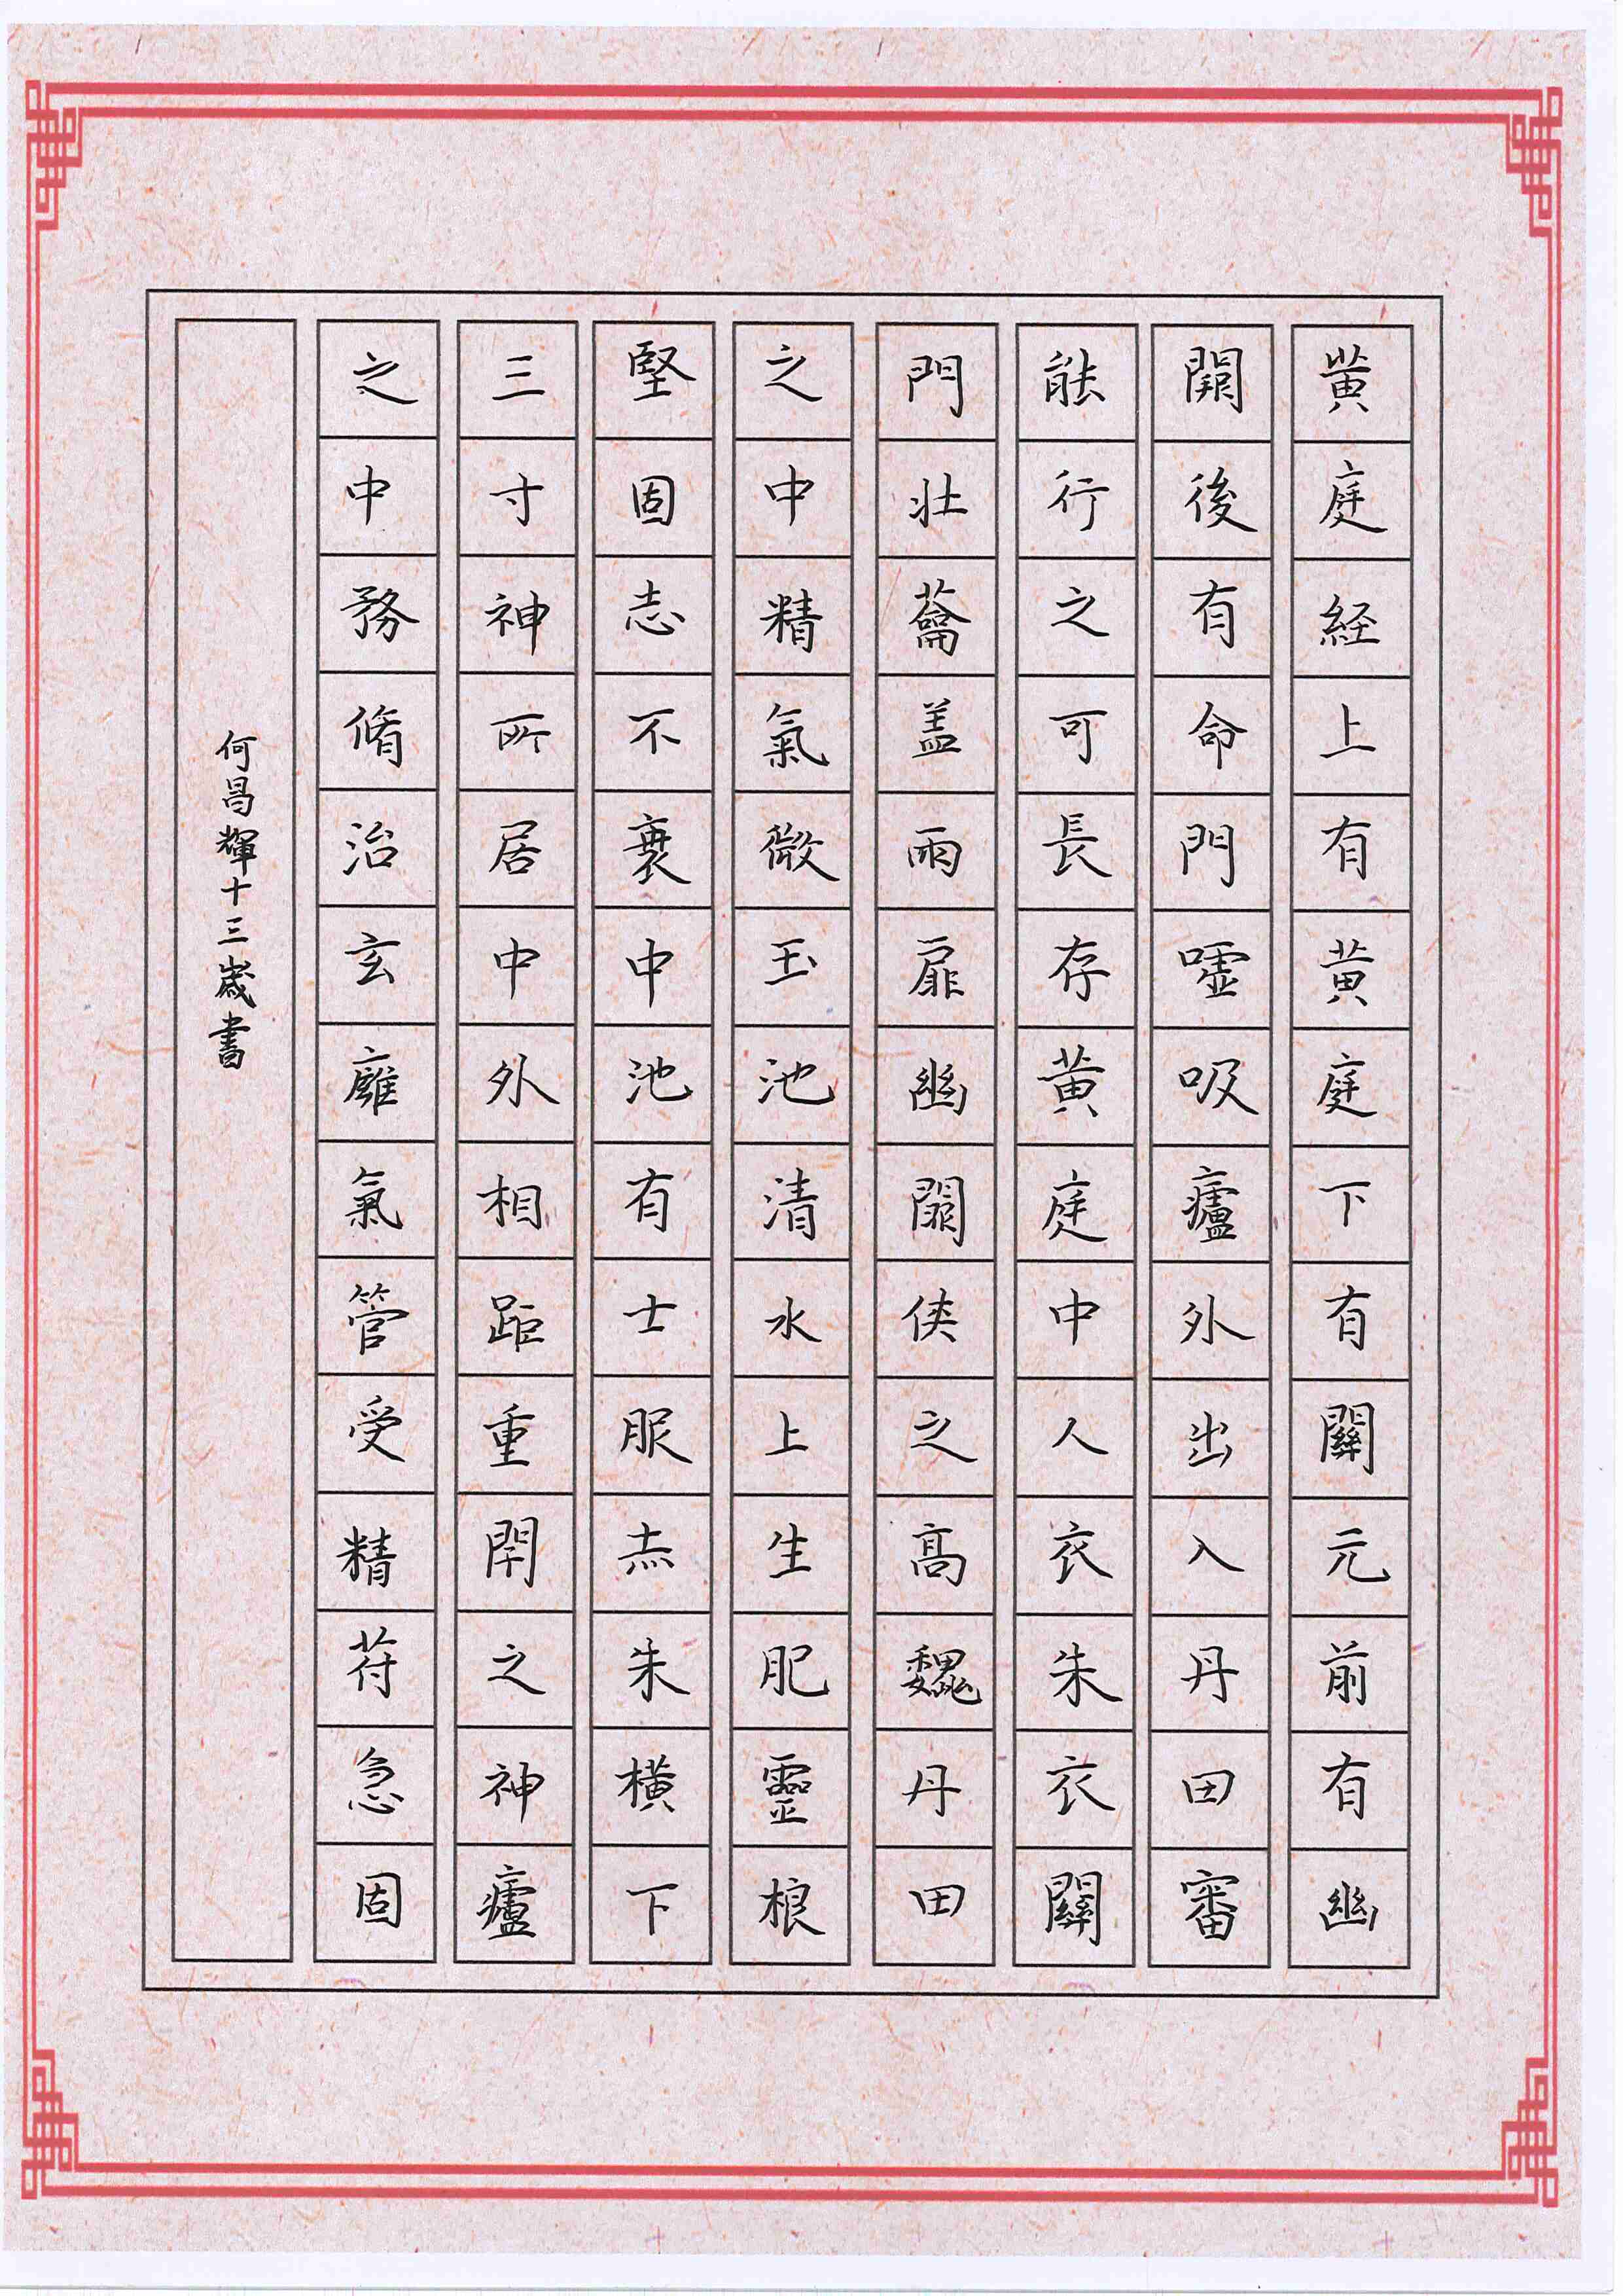 黃庭経上有黃庭下有關元前有幽
闕後有命門嘘吸廬外出入丹田審
能行之可長存黃庭中人衣朱衣關
門壯蘥盖兩扉幽闕侠之高魏丹田
之中精氣微玉池清水上生肥靈根
堅固志不衰中池有士服赤朱橫下
三寸神所居中外相距重閇之神廬
之中務脩治玄廱氣管受精苻急固
何昌輝十三歲書